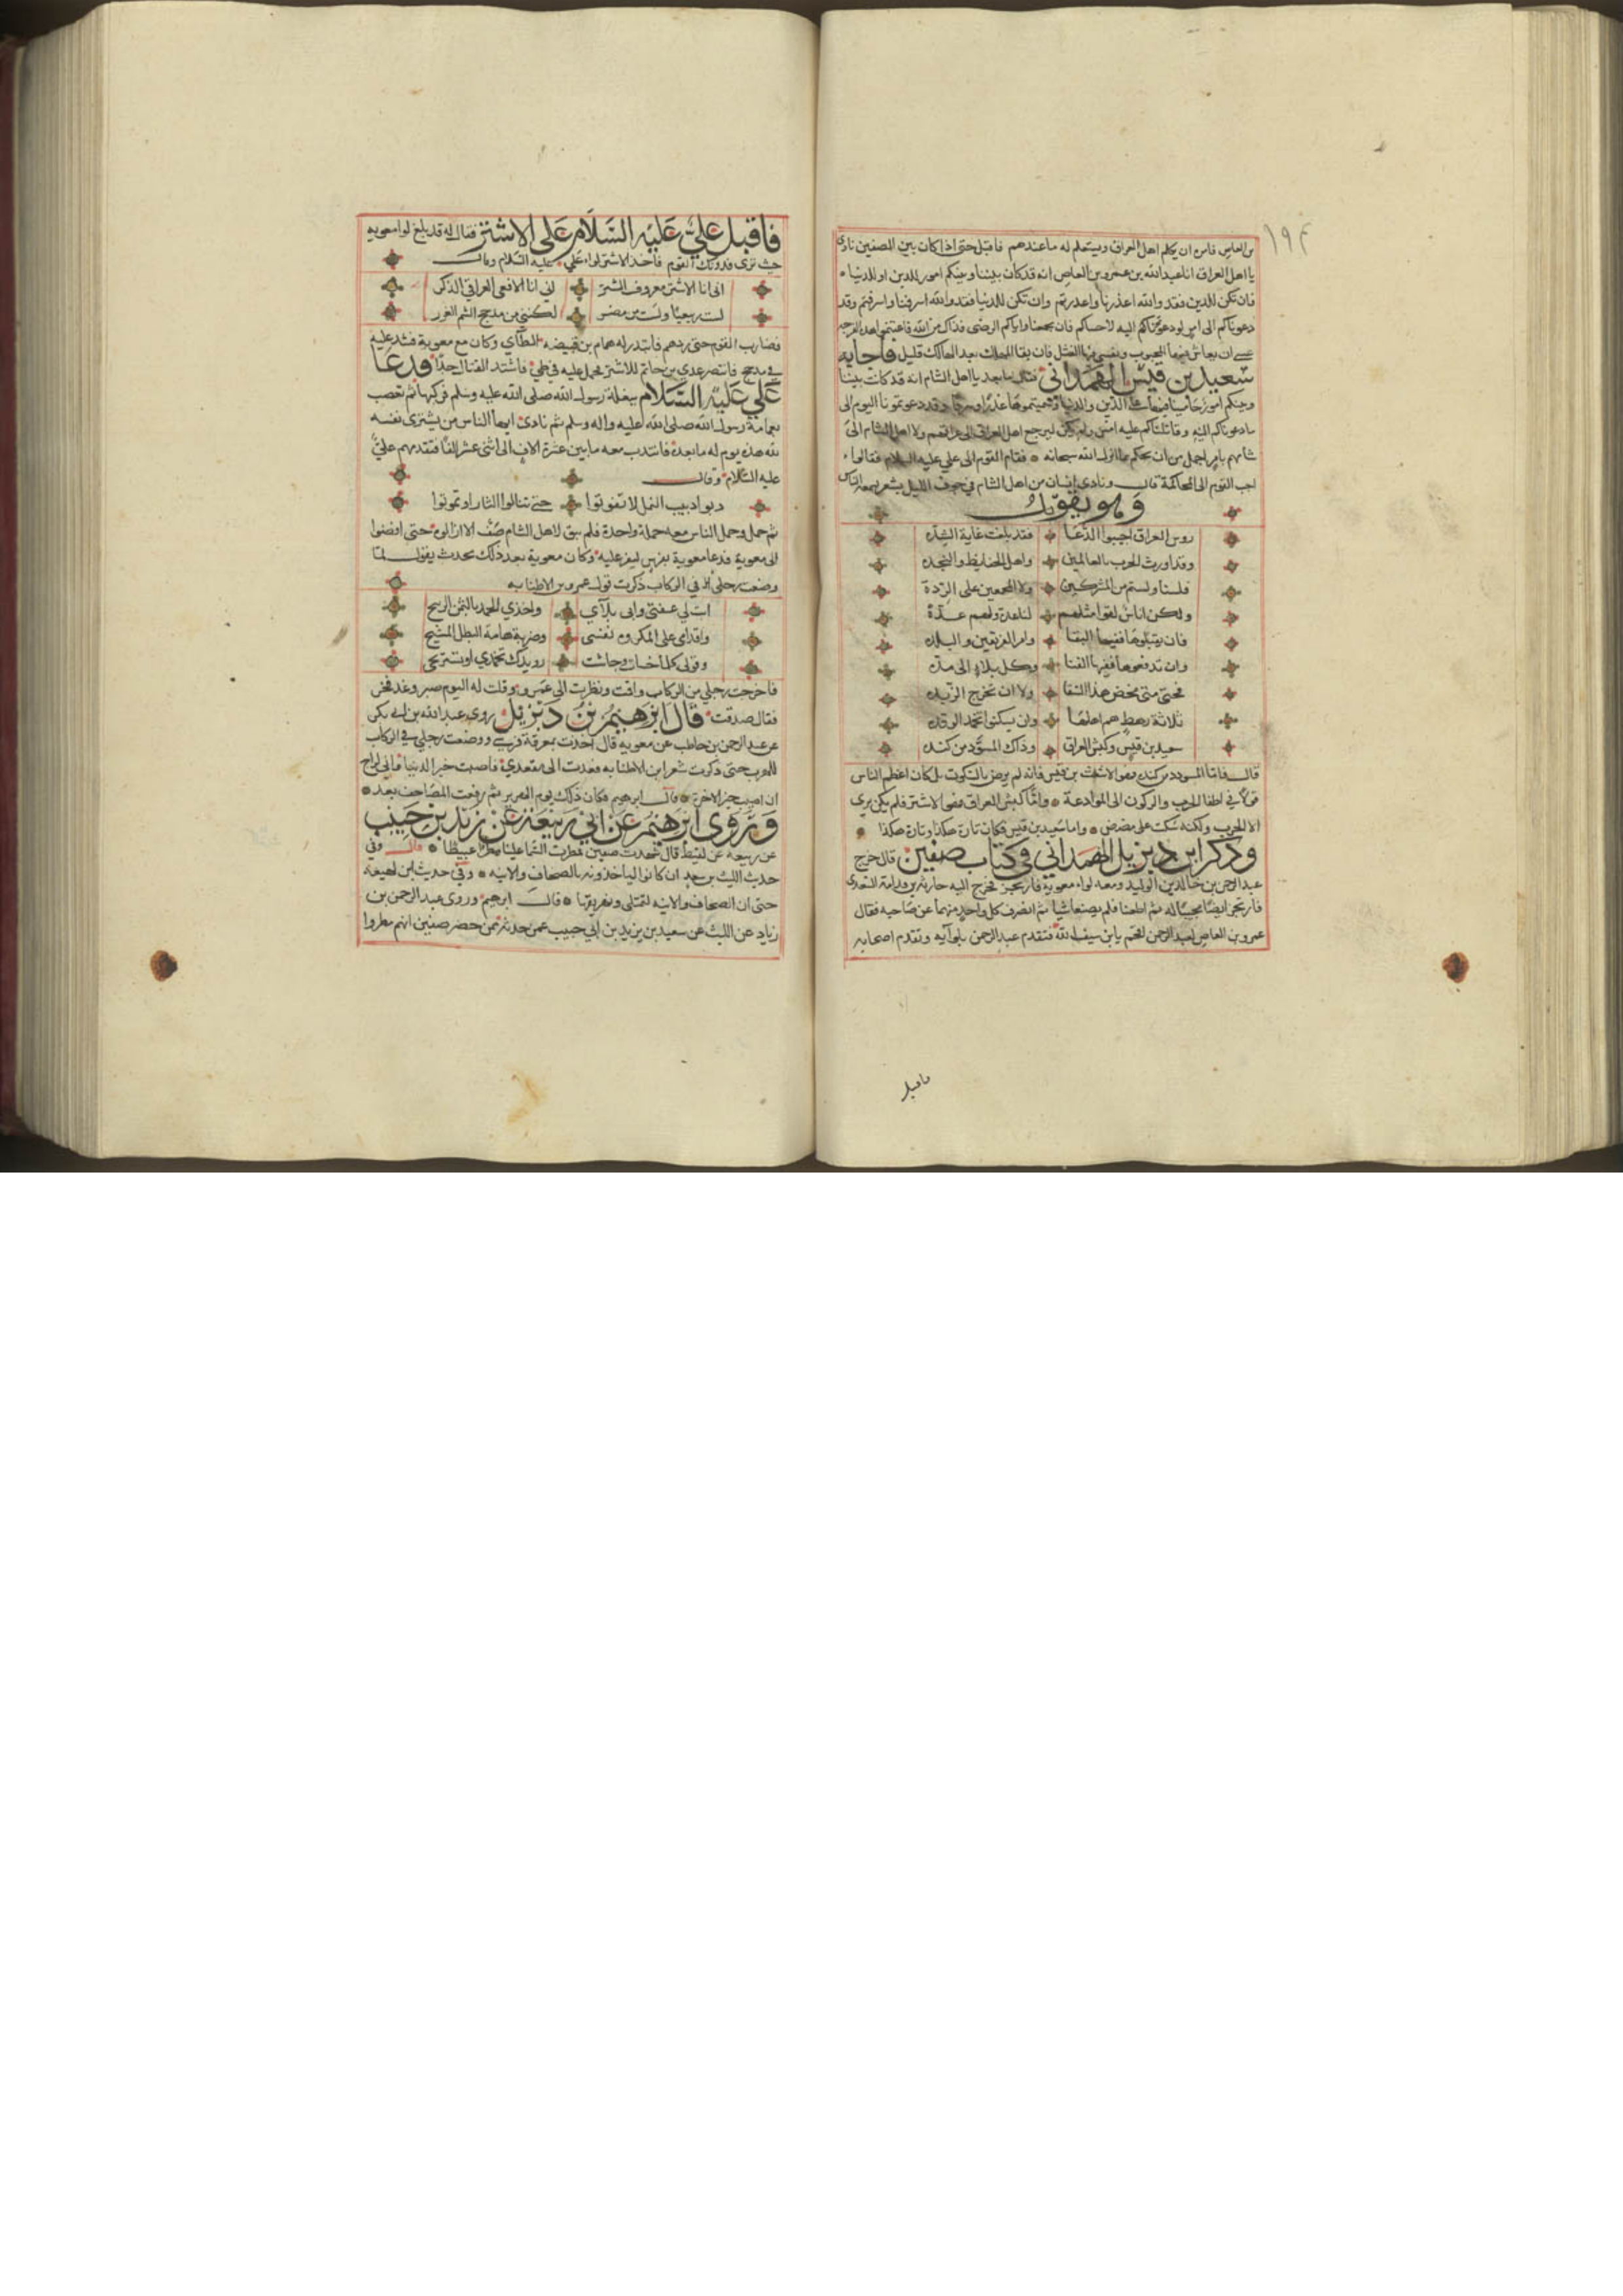 ١٩٤
بن العاص فامره ان يكلم اهل العراق ويستعلم له ما عندهم فاقبل حتى اذا كان بين الصفين نادى
يا اهل العراق انا عبد الله بن عمرو بن العاص انه قد كان بيننا وبينكم امور للدين او للدنيا
فان تكن للدين فقد والله اعذرنا واعذرتم وان تكن للدنيا فقد والله اسرفنا واسرفتم وقد
دعوناكم الى امر لو دعوتمونا اليه لاجبناكم فان يجمعنا واياكم الرضى فذاك من الله فاغتنموا هذه الفرجه
عسى ان يعاش فيها المحبوب وينسى فيها القتيل فان بقا المهلك بعد الهالك قليل فاجابه
سعيد بن قيس الهمداني فقال اما بعد يا اهل الشام انه قد كانت بيننا
وبينكم امور حامينا فيها على الدين والدنيا وسميتموها غدرا وسرفا وقد دعوتمونا اليوم الى
ما دعوناكم اليه وقاتلناكم عليه امس ولم يكن ليرجع اهل العراق الى عراقهم ولا اهل الشام الى
شامهم بامر اجمل من ان يحكم بما انزل الله سبحانه فقام القوم الى علي عليه السلام فقالوا
اجب القوم الى المحاكمة قال ونادى انسان من اهل الشام في جوف الليل بشعر سمعه الناس
وهو يقول
روس العراق اجيبوا الدعا فقد بلغت غاية الشده
وقد اورث الحرب بالعالمين واهل الحفايظ والنجده
فلسنا ولستم من المشركين ولا المجمعين على الردة
ولكن اناس لقوا مثلهم لنا عدة ولهم عدة
فان يقبلوها ففيها البقا وامن الفريقين والبلده
وان تدفعوها ففيها الفنا وكل بلاء الى مدة
فحتى متى مخض هذا السقا ولا ان تخرج الزبده
ثلاثة رهط هم اهلها وان يسكتوا تخمد الوقده
سعيد بن قيس وكبش العراق وذاك المسود من كنده
قال فاما المسود من كنده وهو الاشعث بن قيس فانه لم يرض بالسكوت بل كان اعظم الناس
قولا في اطفا الحرب والركون الى الموادعة واما كبش العراق وهو الاشتر فلم يكن يرى
الا الحرب ولكنه سكت على مضض واما سعيد بن قيس فكان تارة هكذا وتارة هكذا
وذكر ابن ديزيل الهمداني في كتاب صفين قال خرج
عبد الرحمن بن خالد بن الوليد ومعه لواء معوية فارتجز فخرج اليه حارثه بن قدامة السعدي
فارتجز ايضا مجيبا له ثم اطعنا فلم يصنعا شيا ثم انصرف كل واحد منهما عن صاحبه فقال
عمرو بن العاص لعبد الرحمن اقحم يا ابن سيف الله فتقدم عبد الرحمن بلوآيه وتقدم اصحابه
فاقبل
فاقبل علي عليه السلام على الاشتر فقال له قد بلغ لوا معويه
حيث ترى فدونك القوم فاخذ الاشتر لواء علي عليه السلام وقال
اني انا الاشتر معروف الشتر اني انا الافعى العراقي الذكر
لست ربيعيا ولست من مضر لكنني من مذحج الشم الغرر
فضارب القوم حتى ردهم فابتدر له همام بن قبيضه الطآي وكان مع معوية فشد عليه
في مذحج فانتصر عدي بن حاتم للاشتر فحمل عليه في طي فاشتد القتال جدا فدعا
علي عليه السلام ببغلة رسول الله صلى الله عليه وسلم فركبها ثم تعصب
بعمامة رسول الله صلى الله عليه واله وسلم ثم نادى ايها الناس من يشتري نفسه
لله هذه يوم له ما بعده فانتدب معه ما بين عشرة الاف الى اثنى عشر الفا فتقدمهم علي
عليه السلام وقال
دبوا دبيب النمل لا تفوتوا حتى تنالوا الثار او تموتوا
ثم حمل وحمل الناس معه حملة واحدة فلم يبق لاهل الشام صف الا ازالوه حتى افضوا
الى معوية فدعا معوية بفرس ليفر عليه وكان معوية بعد ذلك يحدث يقول لما
وضعت رجلي في الركاب ذكرت قول عمرو بن الاطنابه
ابت لي عفتي وابى بلآي واخذي الحمد بالثمن الربيح
واقدامى على المكروه نفسى وضربى هامة البطل المشيح
وقولى كلما جشات وجاشت رويدك تحمدي او تستريحى
فاخرجت رجلي من الركاب واقمت ونظرت الى عمرو وقلت له اليوم صبر وغد فخر
فقال صدقت قال ابرهيم بن ديزيل روى عبد الله بن ابي بكر
عن عبد الرحمن بن حاطب عن معويه قال اخذت بمعرفة فرسي ووضعت رجلي في الركاب
للهرب حتى ذكرت شعر ابن الاطنابه فعدت الى مقعدي فاصبت خير الدنيا واني لراج
ان اصيب خير الاخرة قال ابرهيم فكان ذلك يوم الهرير ثم رفعت المصاحف بعد
وروى ابرهيم عن ابي ربيعه عن زيد بن حبيب
عن ربيعه عن لقيط قال شهدت صفين فمطرت السما علينا دما عبيطا قال وفي
حديث الليث بن سعد ان كانوا لياخذونه بالصحاف والانيه وفي حديث ابن لهيعه
حتى ان الصحاف والانيه لتمتلى ونهريقها قال ابرهيم وروى عبد الرحمن بن
زياد عن الليث عن سعيد بن يزيد بن ابي حبيب عمن حدثه ممن حضر صفين انهم مطروا